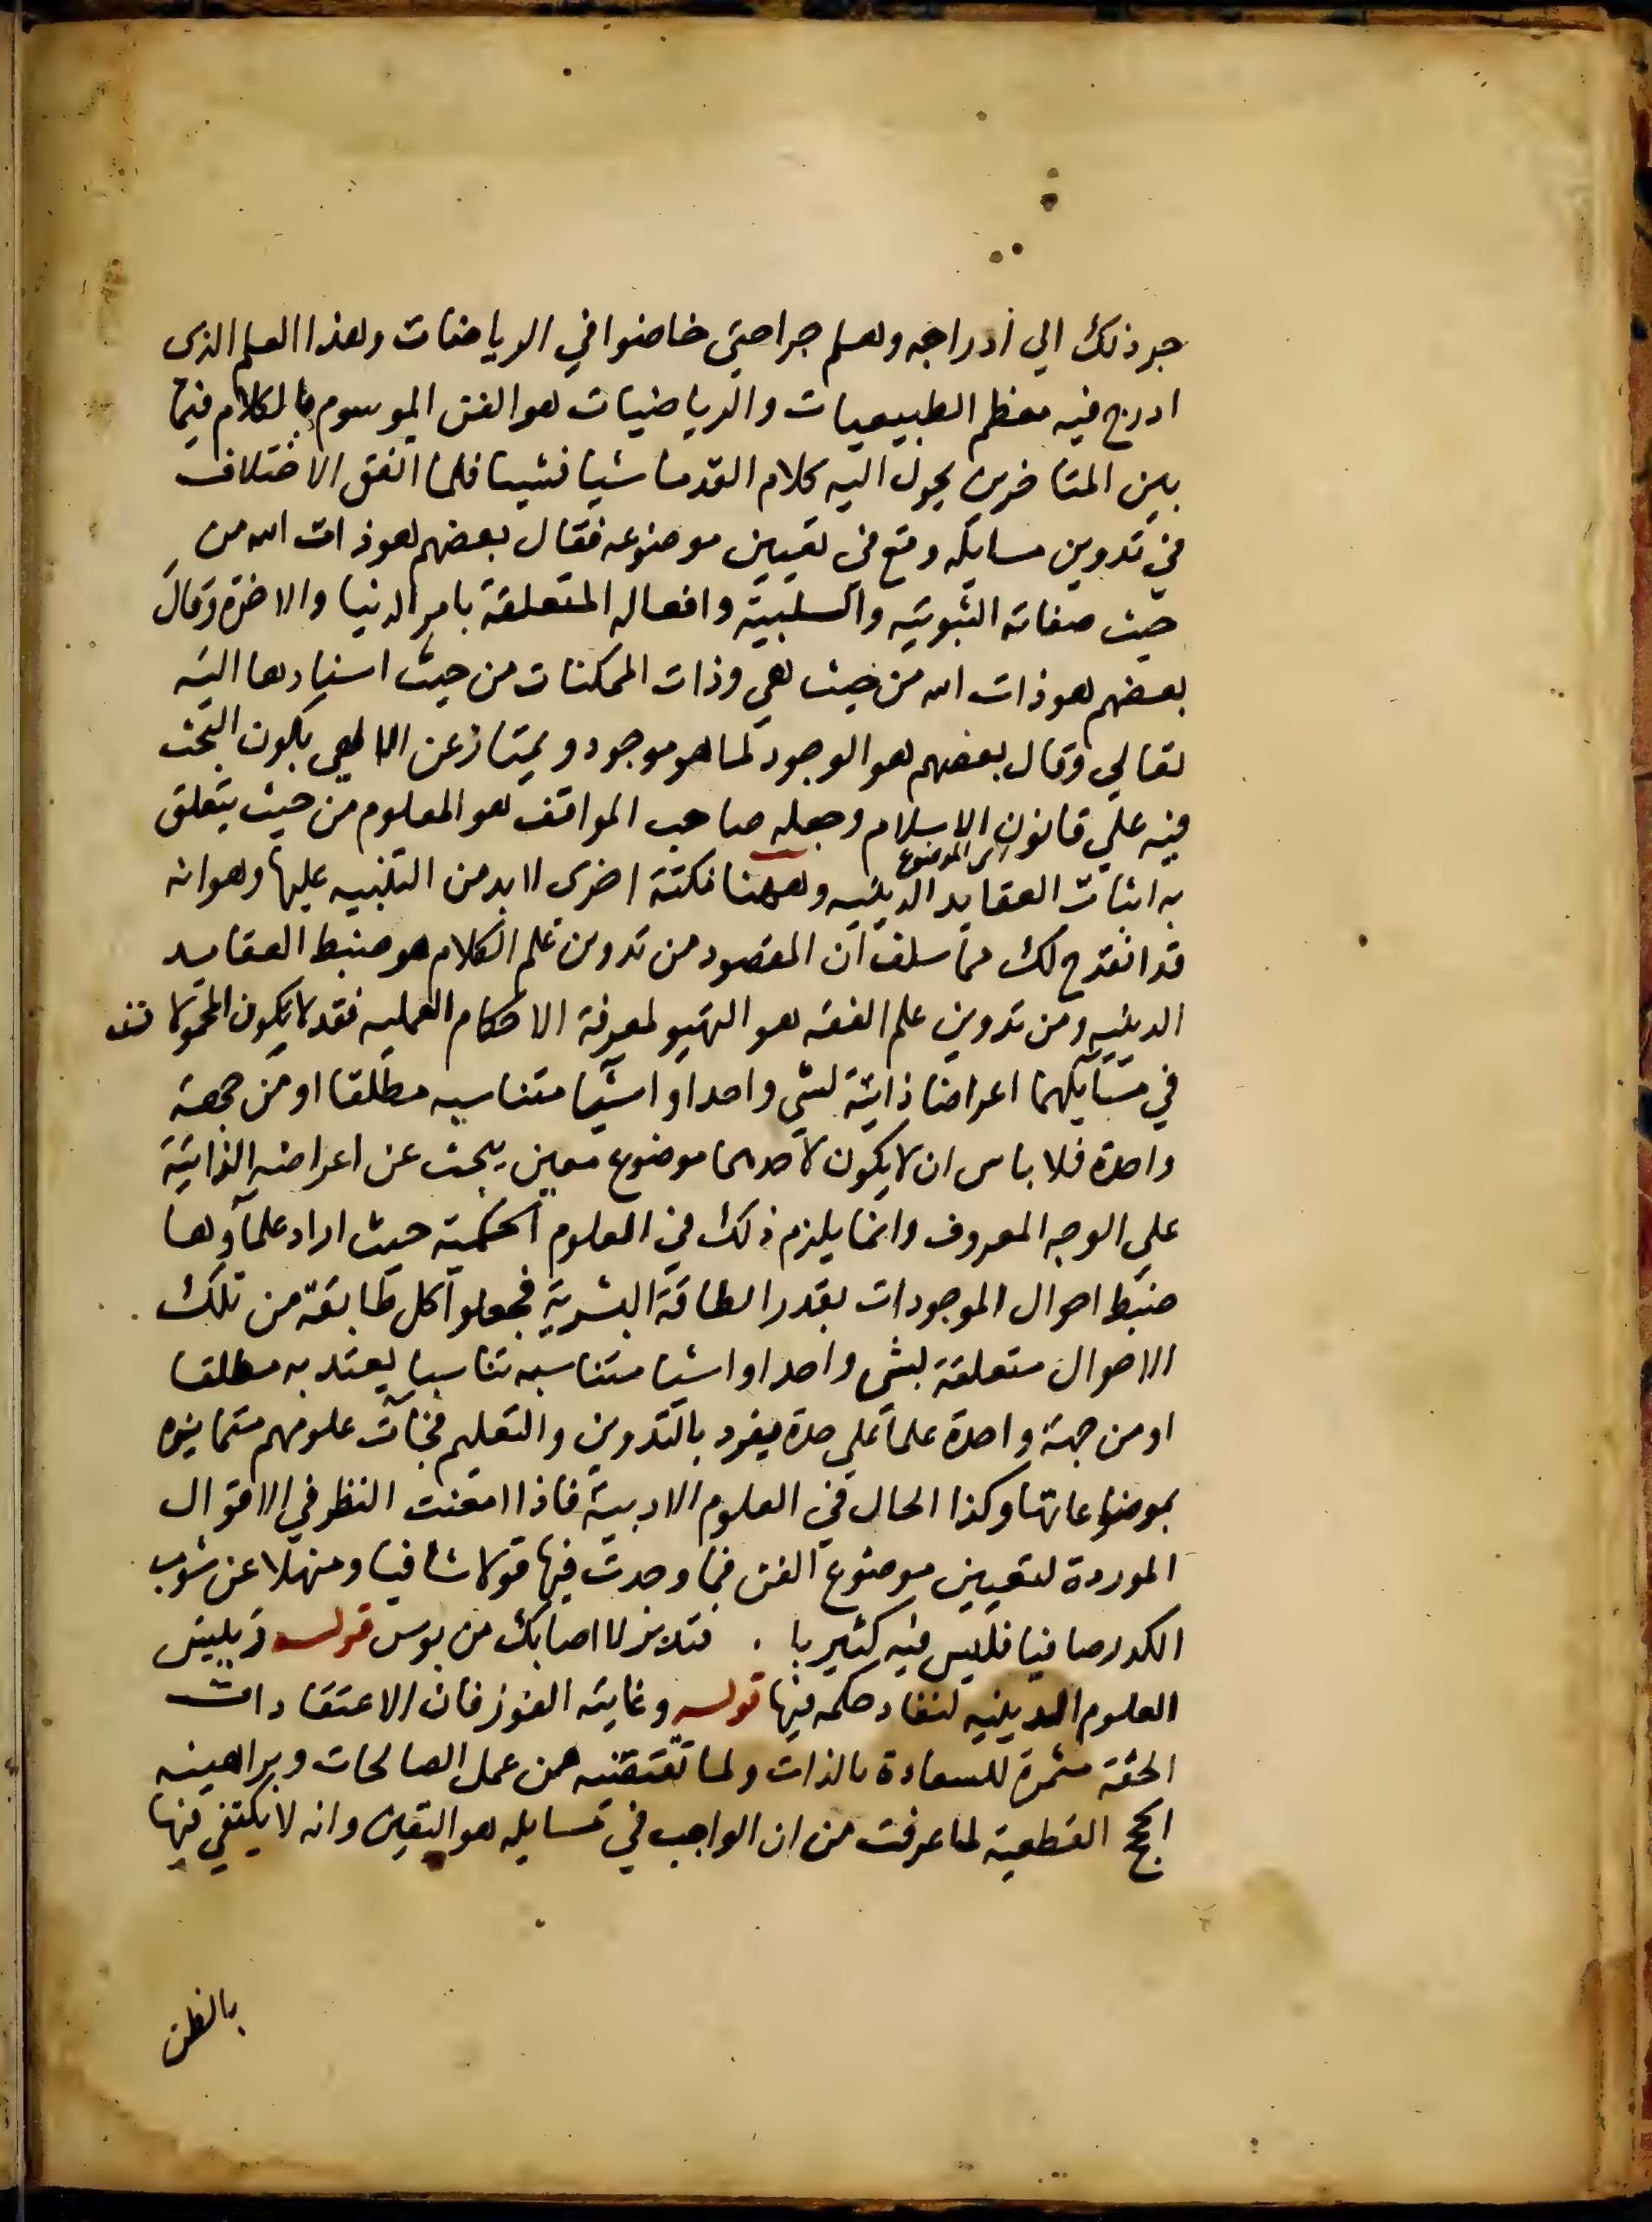 جر ذلك الي ادراجه وهلم جرا حتي خاضوا في الرياضات وهذا العلم الذى
ادرج فيه معظم الطبيعيات والرياضيات هو الفن الموسوم بالكلام فيما
بين المتاخرين يحول اليه كلام القدما شيا فشيا فلما اتفق الاختلاف
في تدوين مسايله وقع في تعيين موضوعه فقال بعضهم هو ذات الله من
حيث صفاته الثبوتيه والسلبية وافعاله المتعلقة بامر الدنيا والاخرة وقال
بعضهم هو ذات الله من حيث هي وذات الممكنات من حيث اسنادها اليه
تعالي وقال بعضهم هو الوجود لما هو موجود ويمتاز عن الالهي بكون البحث
فيه علي قانون الاسلام وجعله صاحب المواقف هو المعلوم من حيث يتعلق
اى الموضوع
به اثبات العقايد الدينيه وههنا نكتة اخرى لا بد من التنبيه عليها وهو انه
قد انقدح لك مما سلف ان المقصود من تدوين علم الكلام هو ضبط العقايد
الدينيه ومن تدوين علم الفقه هو التهيو لمعرفة الاحكام العمليه فقد لا يكون المحمولات
في مسايلهما اعراضا ذاتية لشي واحد او اشيا متناسبه مطلقا او من جهة
واحدة فلا باس ان لا يكون لاحدهما موضوع معين يبحث عن اعراضه الذاتية
علي الوجه المعروف وانما يلزم ذلك في العلوم الحكمية حيث اراد علماوها
ضبط احوال الموجودات بقدر الطاقة البشرية فجعلوا كل طايفة من تلك
الاحوال متعلقة بشى واحد او اشيا متناسبه تناسبا يعتد به مطلقا
او من جهة واحدة علما علي حدة يفرد بالتدوين والتعليم فجات علومهم متمايزه
بموضوعاتها وكذا الحال في العلوم الادبية فاذا امعنت النظر في الاقوال
الموردة لتعيين موضوع الفن فما وجدت فيها قولا شافيا ومنهلا عن شوب
الكدر صافيا فليس فيه كثير با . فتلا بزلا اصابك من بوس قوله رييس
العلوم الدينيه لنفاد حكمه فيها قوله وغايته الفوز فان الاعتقادات
الحقة مثمرة للسعادة بالذات ولما تقتضيه من عمل الصالحات وبراهينه
الحجج القطعية لما عرفت من ان الواجب في مسايله هو اليقين وانه لا يكتفي فيها
بالظن